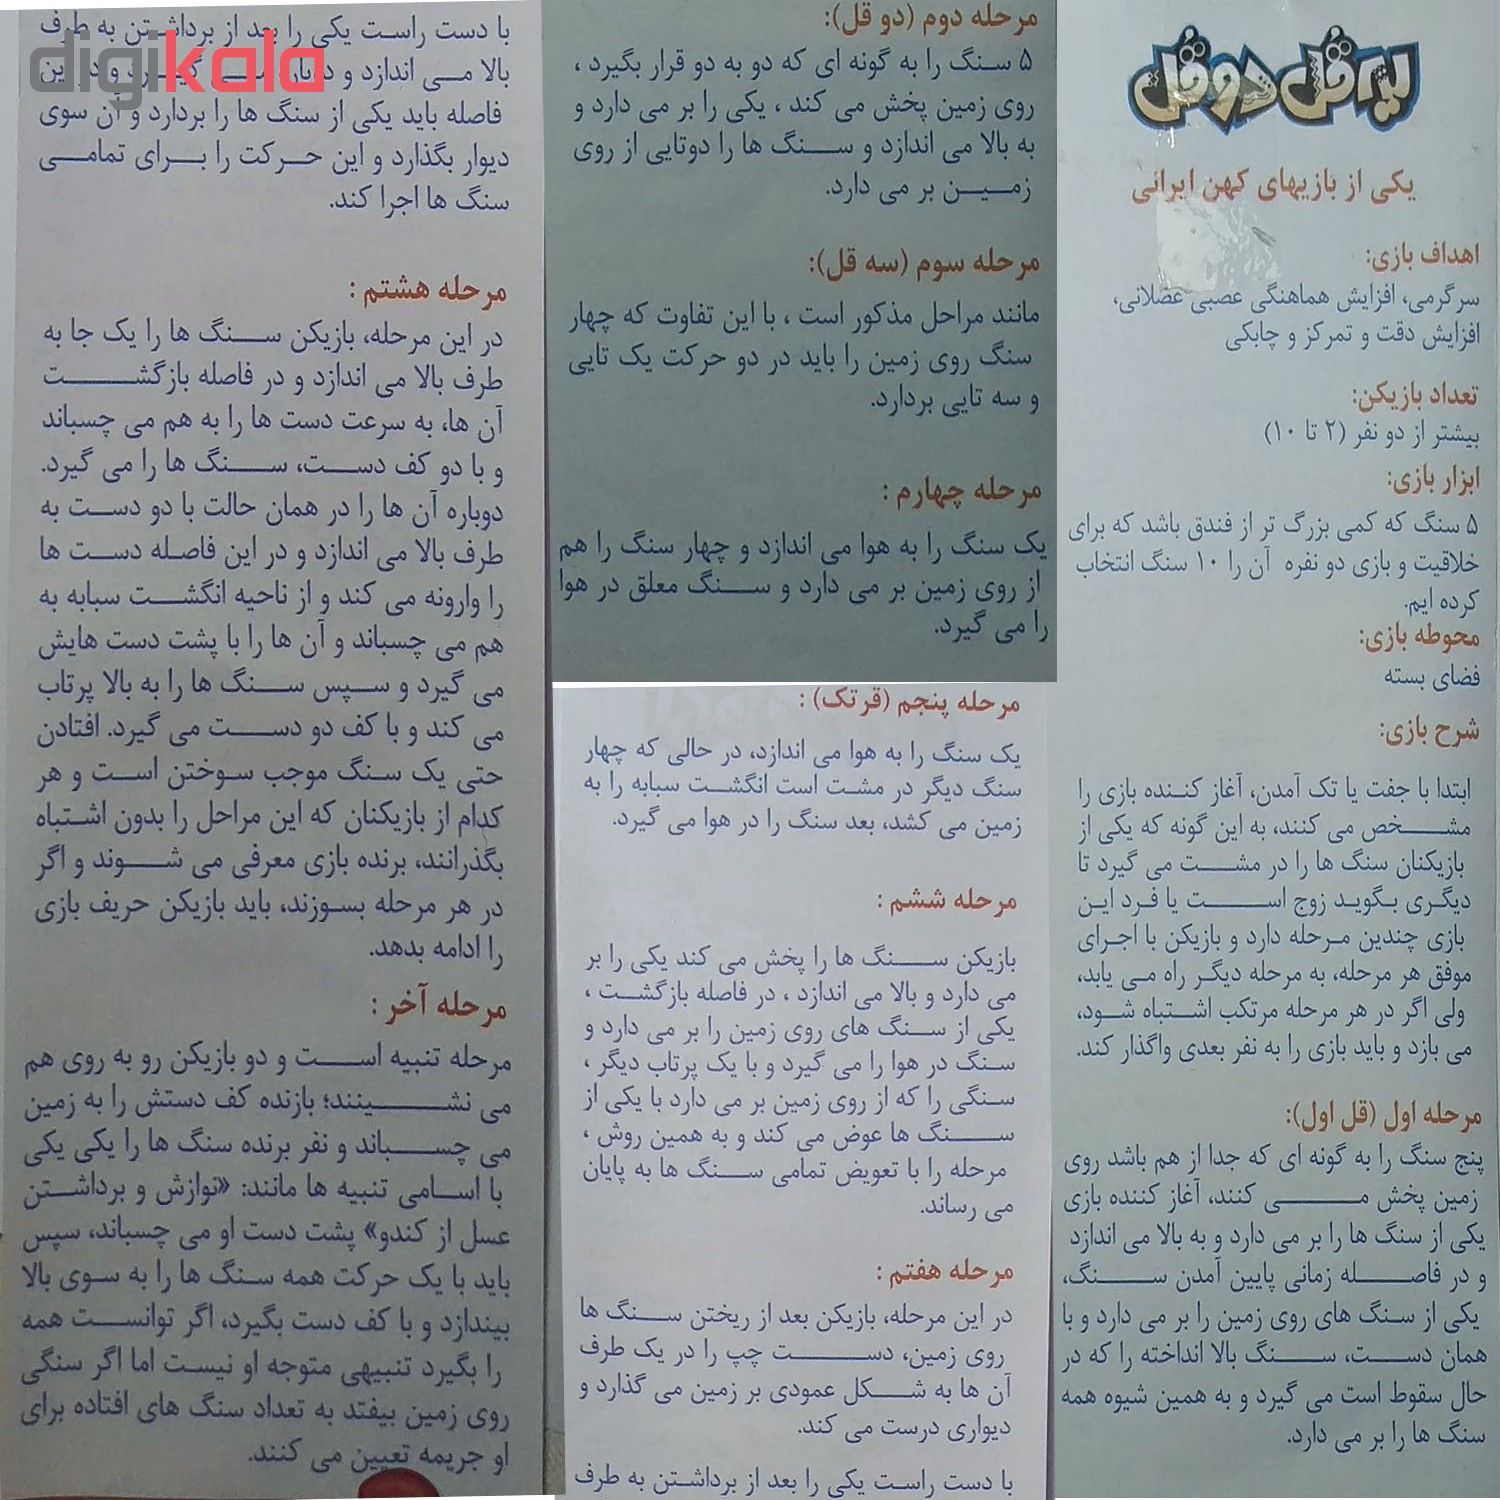 یه قل دو قل
یکی از بازیهای کهن ایرانی
اهداف بازی:
سرگرمی، افزایش هماهنگی عصبی عضلانی،
افزایش دقت و تمرکز و چابکی
تعداد بازیکن:
بیشتر از دو نفر (۲ تا ۱۰)
ابزار بازی:
۵ سنگ که کمی بزرگ تر از فندق باشد که برای
خلاقیت و بازی دو نفره آن را ۱۰ سنگ انتخاب
کرده ایم.
محوطه بازی:
فضای بسته
شرح بازی:
ابتدا با جفت یا تک آمدن، آغاز کننده بازی را
مشخص می کنند، به این گونه که یکی از
بازیکنان سنگ ها را در مشت می گیرد تا
دیگری بگوید زوج است یا فرد این
بازی چندین مرحله دارد و بازیکن با اجرای
موفق هر مرحله، به مرحله دیگر راه می یابد،
ولی اگر در هر مرحله مرتکب اشتباه شود،
می بازد و باید بازی را به نفر بعدی واگذار کند.
مرحله اول (قل اول):
پنج سنگ را به گونه ای که جدا از هم باشد روی
زمین پخش می کنند، آغاز کننده بازی
یکی از سنگ ها را بر می دارد و به بالا می اندازد
و در فاصله زمانی پایین آمدن سنگ،
یکی از سنگ های روی زمین را بر می دارد و با
همان دست، سنگ بالا انداخته را که در
حال سقوط است می گیرد و به همین شیوه همه
سنگ ها را بر می دارد.
مرحله دوم (دو قل):
۵ سنگ را به گونه ای که دو به دو قرار بگیرد ،
روی زمین پخش می کند ، یکی را بر می دارد و
به بالا می اندازد و سنگ ها را دوتایی از روی
زمین بر می دارد.
مرحله سوم (سه قل):
مانند مراحل مذکور است ، با این تفاوت که چهار
سنگ روی زمین را باید در دو حرکت یک تایی
و سه تایی بردارد.
مرحله چهارم :
یک سنگ را به هوا می اندازد و چهار سنگ را هم
از روی زمین بر می دارد و سنگ معلق در هوا
را می گیرد.
مرحله پنجم (قرتک) :
یک سنگ را به هوا می اندازد، در حالی که چهار
سنگ دیگر در مشت است انگشت سبابه را به
زمین می کشد، بعد سنگ را در هوا می گیرد.
مرحله ششم :
بازیکن سنگ ها را پخش می کند یکی را بر
می دارد و بالا می اندازد ، در فاصله بازگشت ،
یکی از سنگ های روی زمین را بر می دارد و
سنگ در هوا را می گیرد و با یک پرتاب دیگر ،
سنگی را که از روی زمین بر می دارد با یکی از
سنگ ها عوض می کند و به همین روش ،
مرحله را با تعویض تمامی سنگ ها به پایان
می رساند.
مرحله هفتم :
در این مرحله، بازیکن بعد از ریختن سنگ ها
روی زمین، دست چپ را در یک طرف
آن ها به شکل عمودی بر زمین می گذارد و
دیواری درست می کند.
با دست راست یکی را بعد از برداشتن به طرف
با دست راست یکی را بعد از برداشتن به طرف
بالا می اندازد و دوباره می گیرد و در این
فاصله باید یکی از سنگ ها را بردارد و آن سوی
دیوار بگذارد و این حرکت را برای تمامی
سنگ ها اجرا کند.
مرحله هشتم :
در این مرحله، بازیکن سنگ ها را یک جا به
طرف بالا می اندازد و در فاصله بازگشت
آن ها، به سرعت دست ها را به هم می چسباند
و با دو کف دست، سنگ ها را می گیرد.
دوباره آن ها را در همان حالت با دو دست به
طرف بالا می اندازد و در این فاصله دست ها
را وارونه می کند و از ناحیه انگشت سبابه به
هم می چسباند و آن ها را با پشت دست هایش
می گیرد و سپس سنگ ها را به بالا پرتاب
می کند و با کف دو دست می گیرد. افتادن
حتی یک سنگ موجب سوختن است و هر
کدام از بازیکنان که این مراحل را بدون اشتباه
بگذرانند، برنده بازی معرفی می شوند و اگر
در هر مرحله بسوزند، باید بازیکن حریف بازی
را ادامه بدهد.
مرحله آخر :
مرحله تنبیه است و دو بازیکن رو به روی هم
می نشینند؛ بازنده کف دستش را به زمین
می چسباند و نفر برنده سنگ ها را یکی یکی
با اسامی تنبیه ها مانند: «نوازش و برداشتن
عسل از کندو» پشت دست او می چسباند، سپس
باید با یک حرکت همه سنگ ها را به سوی بالا
بیندازد و با کف دست بگیرد، اگر توانست همه
را بگیرد تنبیهی متوجه او نیست اما اگر سنگی
روی زمین بیفتد به تعداد سنگ های افتاده برای
او جریمه تعیین می کنند.
digikala